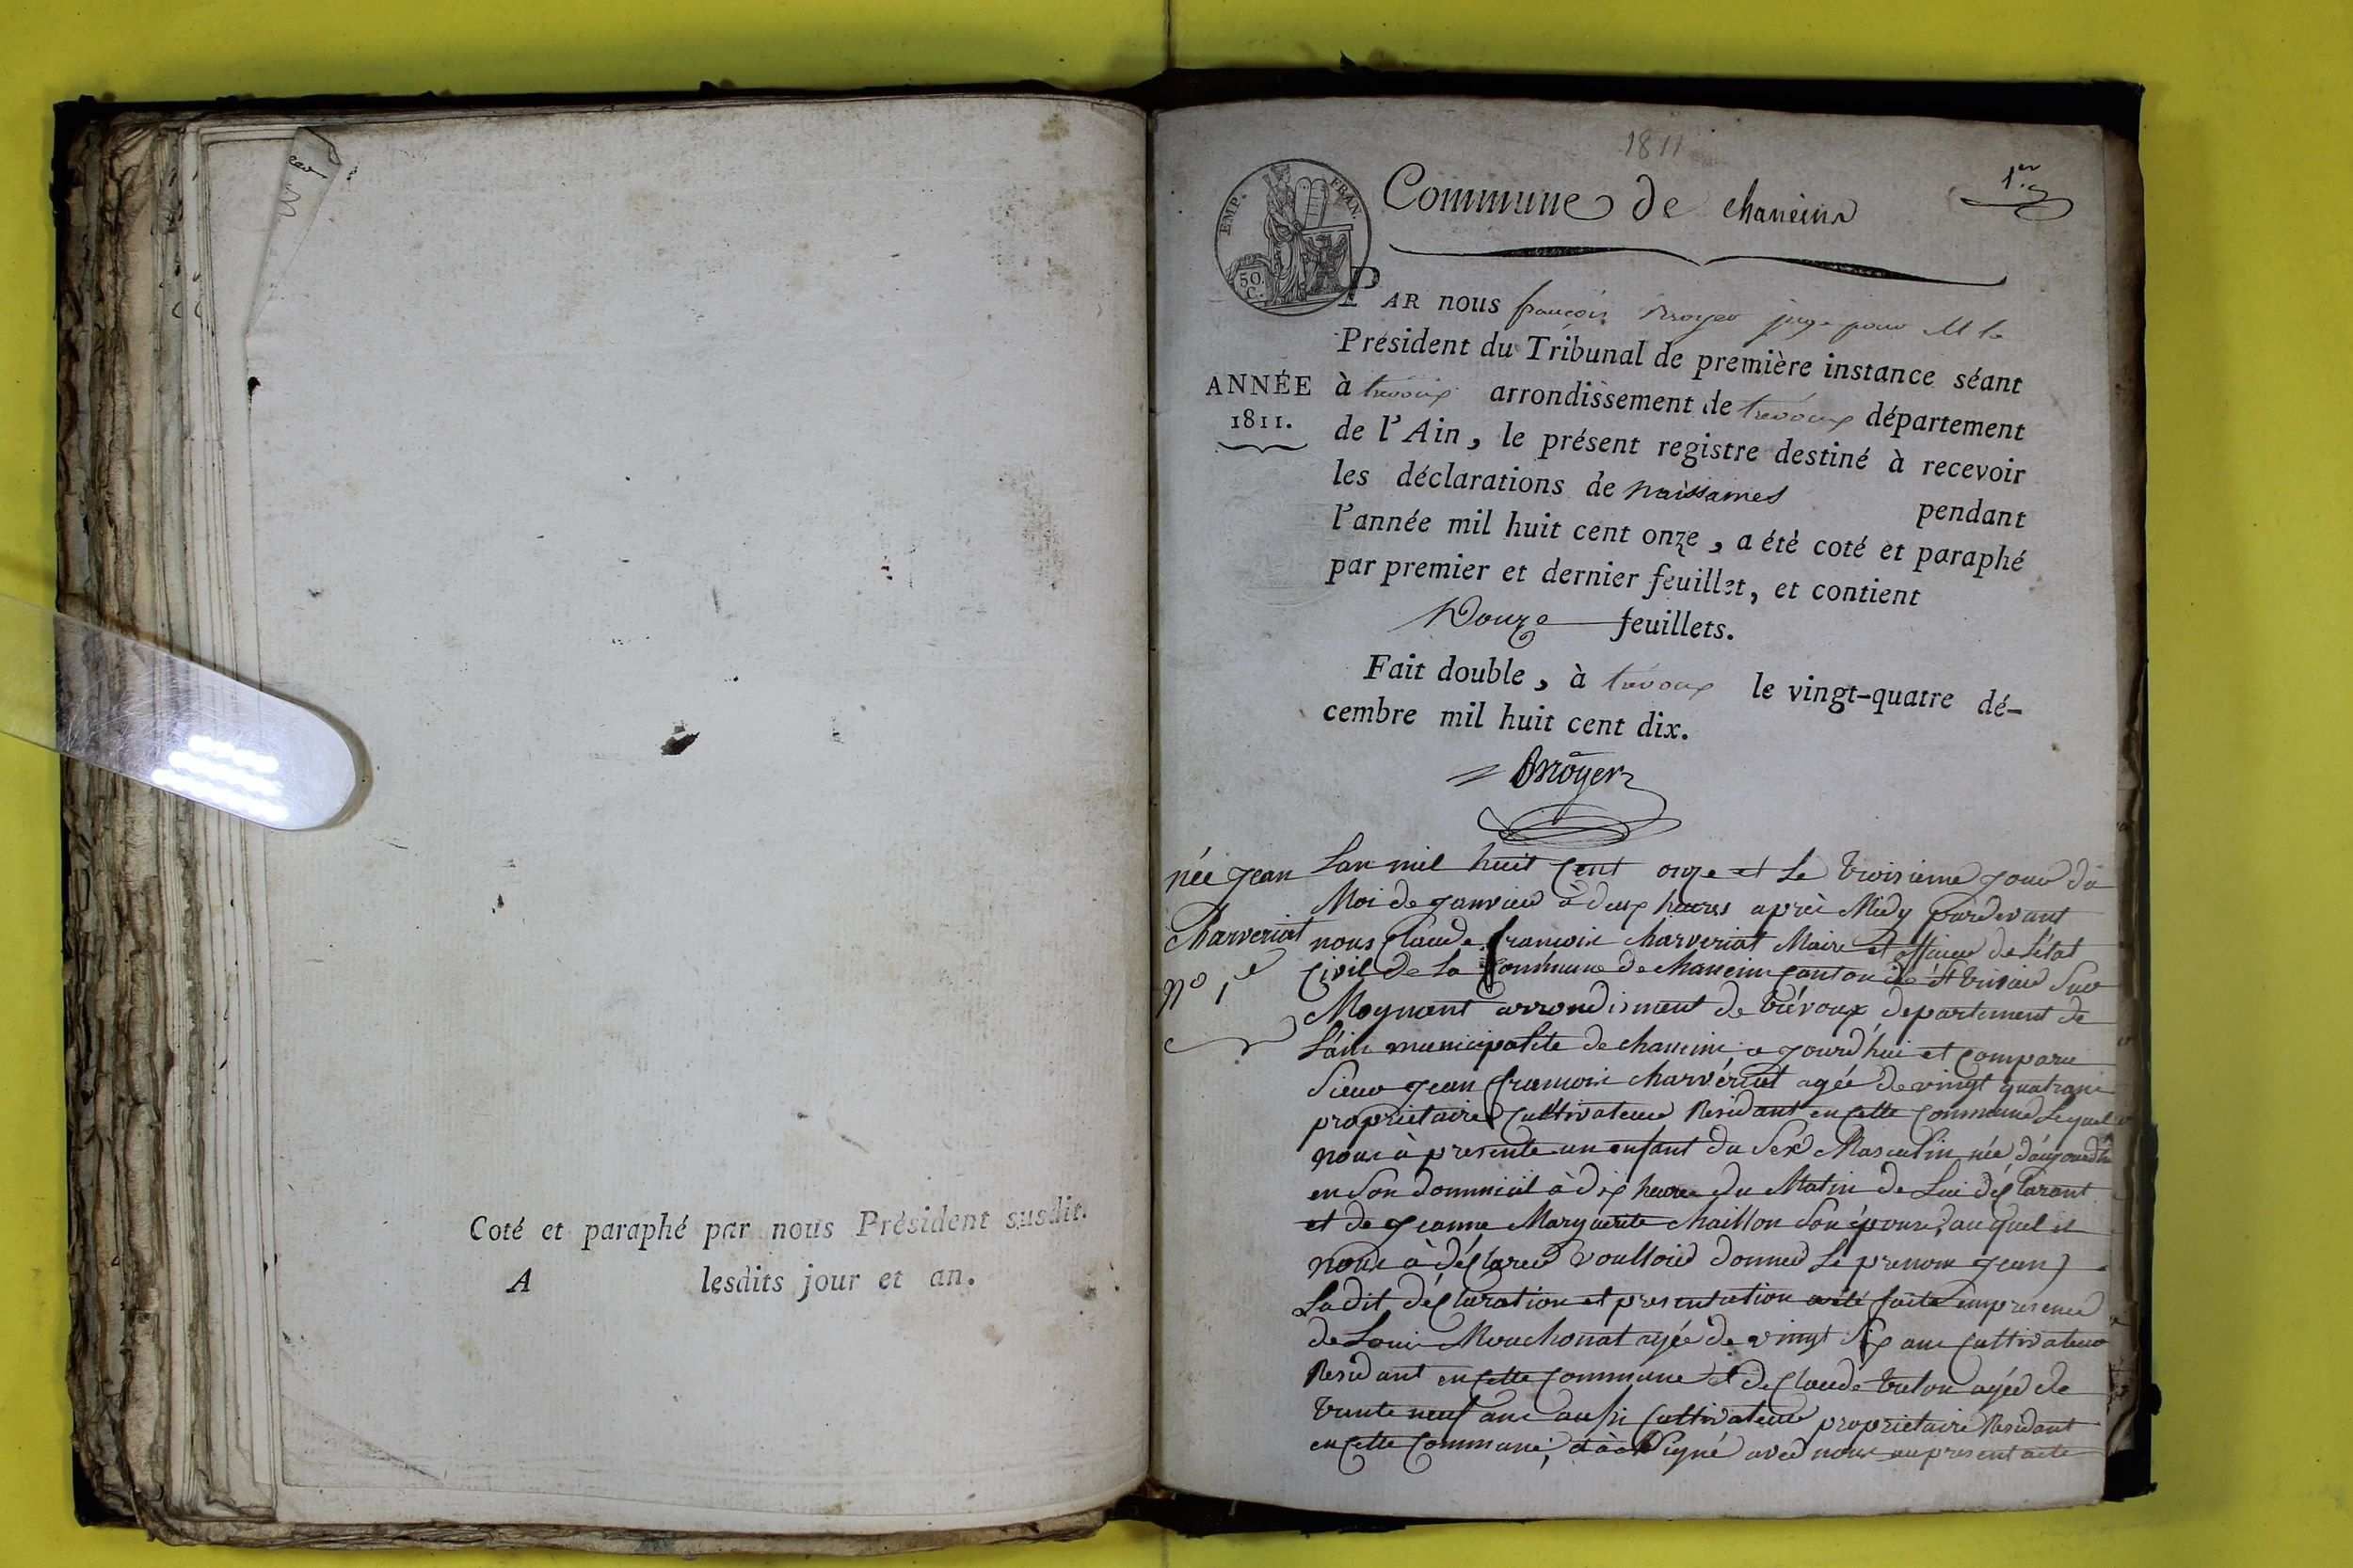 Coté et paraphé par nous Président susdit.
A lesdits jour et an.
1811
EMP. FRAN.
50. C.
Commune de chaneins
1er
PAR nous françois juge pour M le
Président du Tribunal de première instance séant
ANNÉE
1811.
à trévoux arrondissement de trévoux département
de l'Ain, le présent registre destiné à recevoir
les déclarations de naissances pendant
l'année mil huit cent onze, a été coté et paraphé
par premier et dernier feuillet, et contient
Douze feuillets.
Fait double, à trévoux le vingt-quatre dé-
cembre mil huit cent dix.
née Jean
Charveriat
No 1e
Lan mil huit Cent onze et Le troisieme Jour du
Moi de Janvier à deux heures après Midy pardevant
nous Claude francois Charveriat Maire et officier de Létat
Civil de La Commune de Chaneins Canton de St trivier Sur
Moynant arrondisment de trévoux departement de
L'ain municipalite de chaneins, a Jourd'hui et Comparu
Sieur Jean francois Charvériat agée de vingt quatre ans
proprietaire Cultivateur Residant en Cette Commune Lequel
nous à presenté un enfant du Sex Masculin née d'aujourdhui
en Son dommicil à dix heures du Matin de Lui déClarant
et de Jeanne Marguerite Chaillon Son épouse, auquel il
nous à déClarer voulloir donner Le prenom Jean,
La dit déClaration et presentation a été faite enpresence
de Louis Mouchonat agée de vingt Six ans Cultivateur
Residant en Cette Commune et de Claude agée de
trente neuf ans aussi Cultivateur proprietaire Residant
en Cette Commune, Signé avec nous au present acte